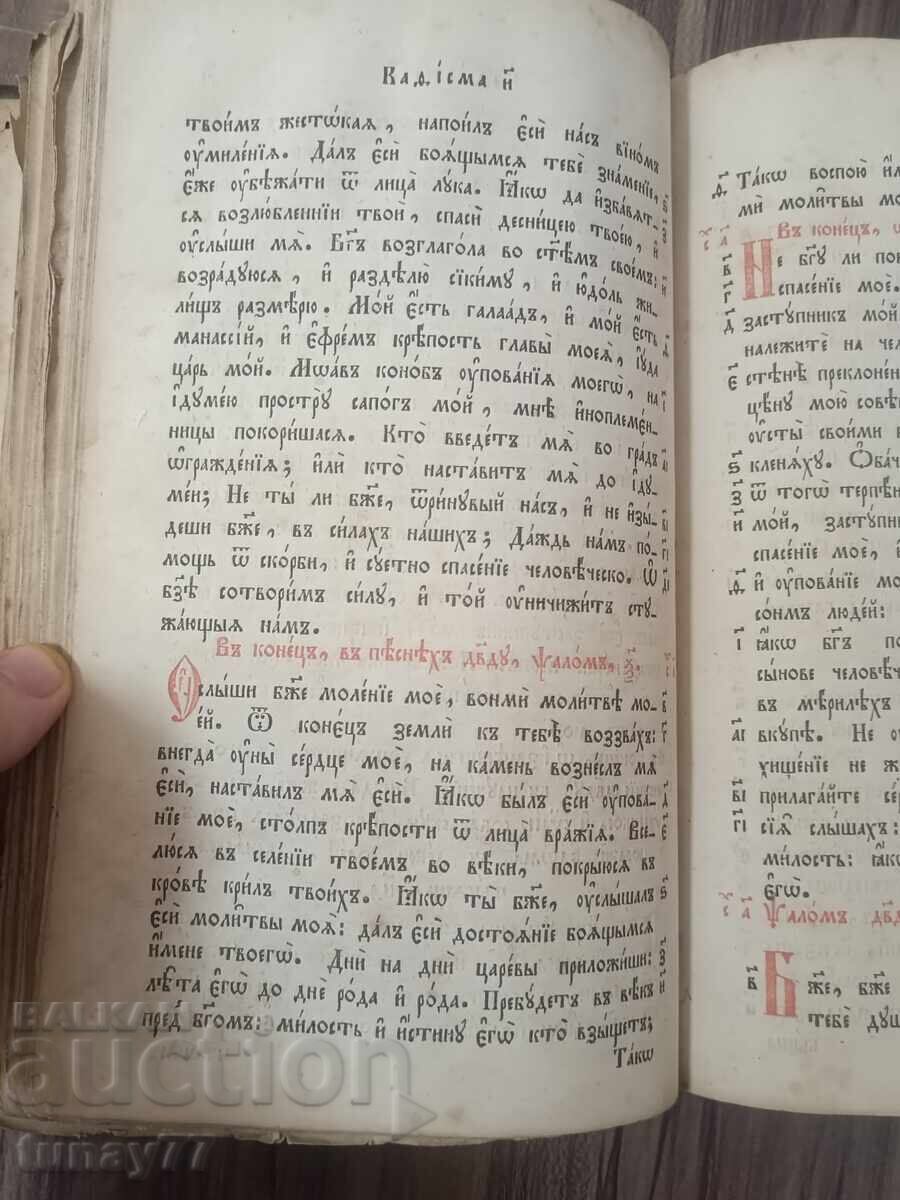 Каѳісма и҃
твои̑мъ жестѡ́кая, напои́лъ є҆сѝ на́съ віно́мъ
ѹ҆миле́нїя. Да́лъ є҆сѝ боя́щымся тебѐ зна́менїе,
є҆́же ѹ҆бѣжа́ти ѿ лица̀ лу́ка. Ꙗ҆́кѡ да и҆зба́вят-
ся возлю́бленнїи твоѝ, спасѝ десни́цею твое́ю, и҆
ѹ҆слы́ши мѧ̀. Бг҃ъ возглаго́ла во ст҃ѣ́мъ свое́мъ:
возра́дуюся, и҆ раздѣлю̀ сїкі́му, и҆ ю҆до́ль жи-
ли́щъ размѣ́рю. Мо́й є҆́сть галаа́дъ, и҆ мо́й є҆́сть
манассі́й, и҆ є҆фре́мъ крѣ́пость главы̀ моеѧ̀, і҆у́да
ца́рь мо́й. Мѡа́въ коно́бъ ѹ҆пова́нїя моегѡ̀, на
і҆думе́ю простру̀ сапо́гъ мо́й, мнѣ̀ и҆ноплеме́н-
ницы покори́шася. Кто̀ введе́тъ мѧ̀ во гра́дъ
ѡ҆гражде́нїя; и҆лѝ кто̀ наста́витъ мѧ̀ до і҆ду-
ме́и; Не ты́ ли бж҃е, ѿри́нувый на́съ, и҆ не и҆зы́-
деши бж҃е, въ си́лахъ на́шихъ; Да́ждь на́мъ по́-
мощь ѿ ско́рби, и҆ су́етно спасе́нїе человѣ́ческо. Ѡ҆
бз҃ѣ сотвори́мъ си́лу, и҆ то́й ѹ҆ничижи́тъ сту-
жа́ющыя на́мъ.
Въ коне́цъ, въ пѣ́снехъ дв҃ду, ѱало́мъ, ѯ҃.
Ѹ҆слы́ши бж҃е моле́нїе моѐ, вонмѝ моли́твѣ мо-
е́й. Ѿ коне́цъ землѝ къ тебѣ̀ воззва́хъ:
внегда̀ ѹ҆ны̀ се́рдце моѐ, на ка́мень возне́слъ мѧ̀
є҆сѝ, наста́вилъ мѧ̀ є҆сѝ. Ꙗ҆́кѡ бы́лъ є҆сѝ ѹ҆пова́-
нїе моѐ, сто́лпъ крѣ́пости ѿ лица̀ вра́жїя. Все-
лю́ся въ селе́нїи твое́мъ во вѣ́ки, покры́юся въ
кро́вѣ кри́лъ твои́хъ. Ꙗ҆́кѡ ты̀ бж҃е, ѹ҆слы́шалъ
є҆сѝ моли́твы моѧ̑: да́лъ є҆сѝ достоѧ́нїе боя́щымся
и҆́мене твоегѡ̀. Днѝ на днѝ царе́вы приложи́ши:
лѣ̑та є҆гѡ̀ до днѐ ро́да и҆ ро́да. Пребу́детъ въ вѣ́къ
пред̾ бг҃омъ: ми́лость и҆ и҆́стину є҆гѡ̀ кто̀ взы́щетъ;
Та́кѡ
Та́кѡ воспою̀
ми моли́твы
Въ коне́цъ,
Не бг҃у ли
спасе́нїе моѐ.
засту́пникъ мо́й
належитѐ на
стѣ́нѣ преклоне́н
цѣ́ну мою̀
ѹ҆сты̀ свои́ми
кленѧ́ху. Ѻ҆ба́че
ѿ тогѡ̀ терпѣ́н
мо́й, засту́пник
спасе́нїе моѐ,
и҆ ѹ҆пова́нїе
со́нмъ люде́й:
ꙗ҆́кѡ бг҃ъ
сы́нове человѣ́ч
въ мѣ́рилѣхъ
вку́пѣ. Не
хище́нїе не
прилага́йте
сїѧ̑ слы́шахъ:
ми́лость: ꙗ҆́кѡ
є҆гѡ̀.
Ѱало́мъ дв҃д
Бж҃е, бж҃е
тебѐ
БАЛКАН
auction
tunay77